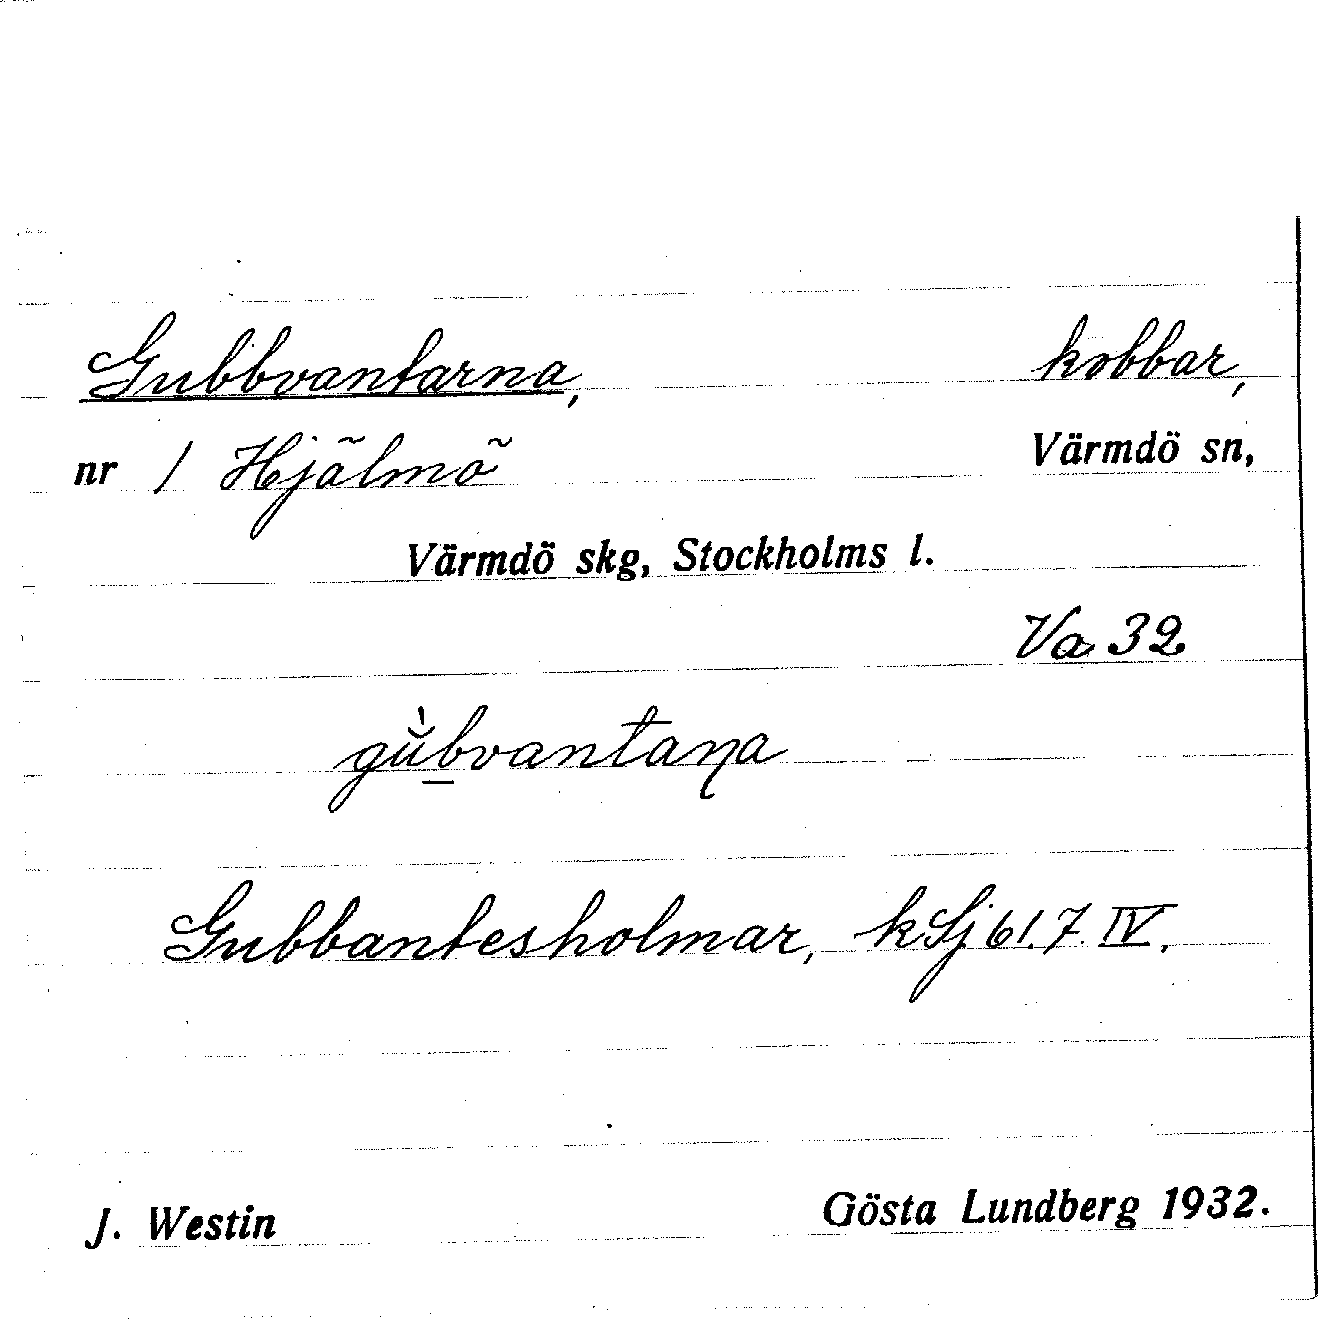 Gubbvantarna, kobbar,
nr 1 Hjälmö Värmdö sn,
Värmdö skg, Stockholms l.
Va 32
gu̇̀b̲vantaꞃa
Gubbantesholmar, kSj 61.7.IV.
J. Westin Gösta Lundberg 1932.